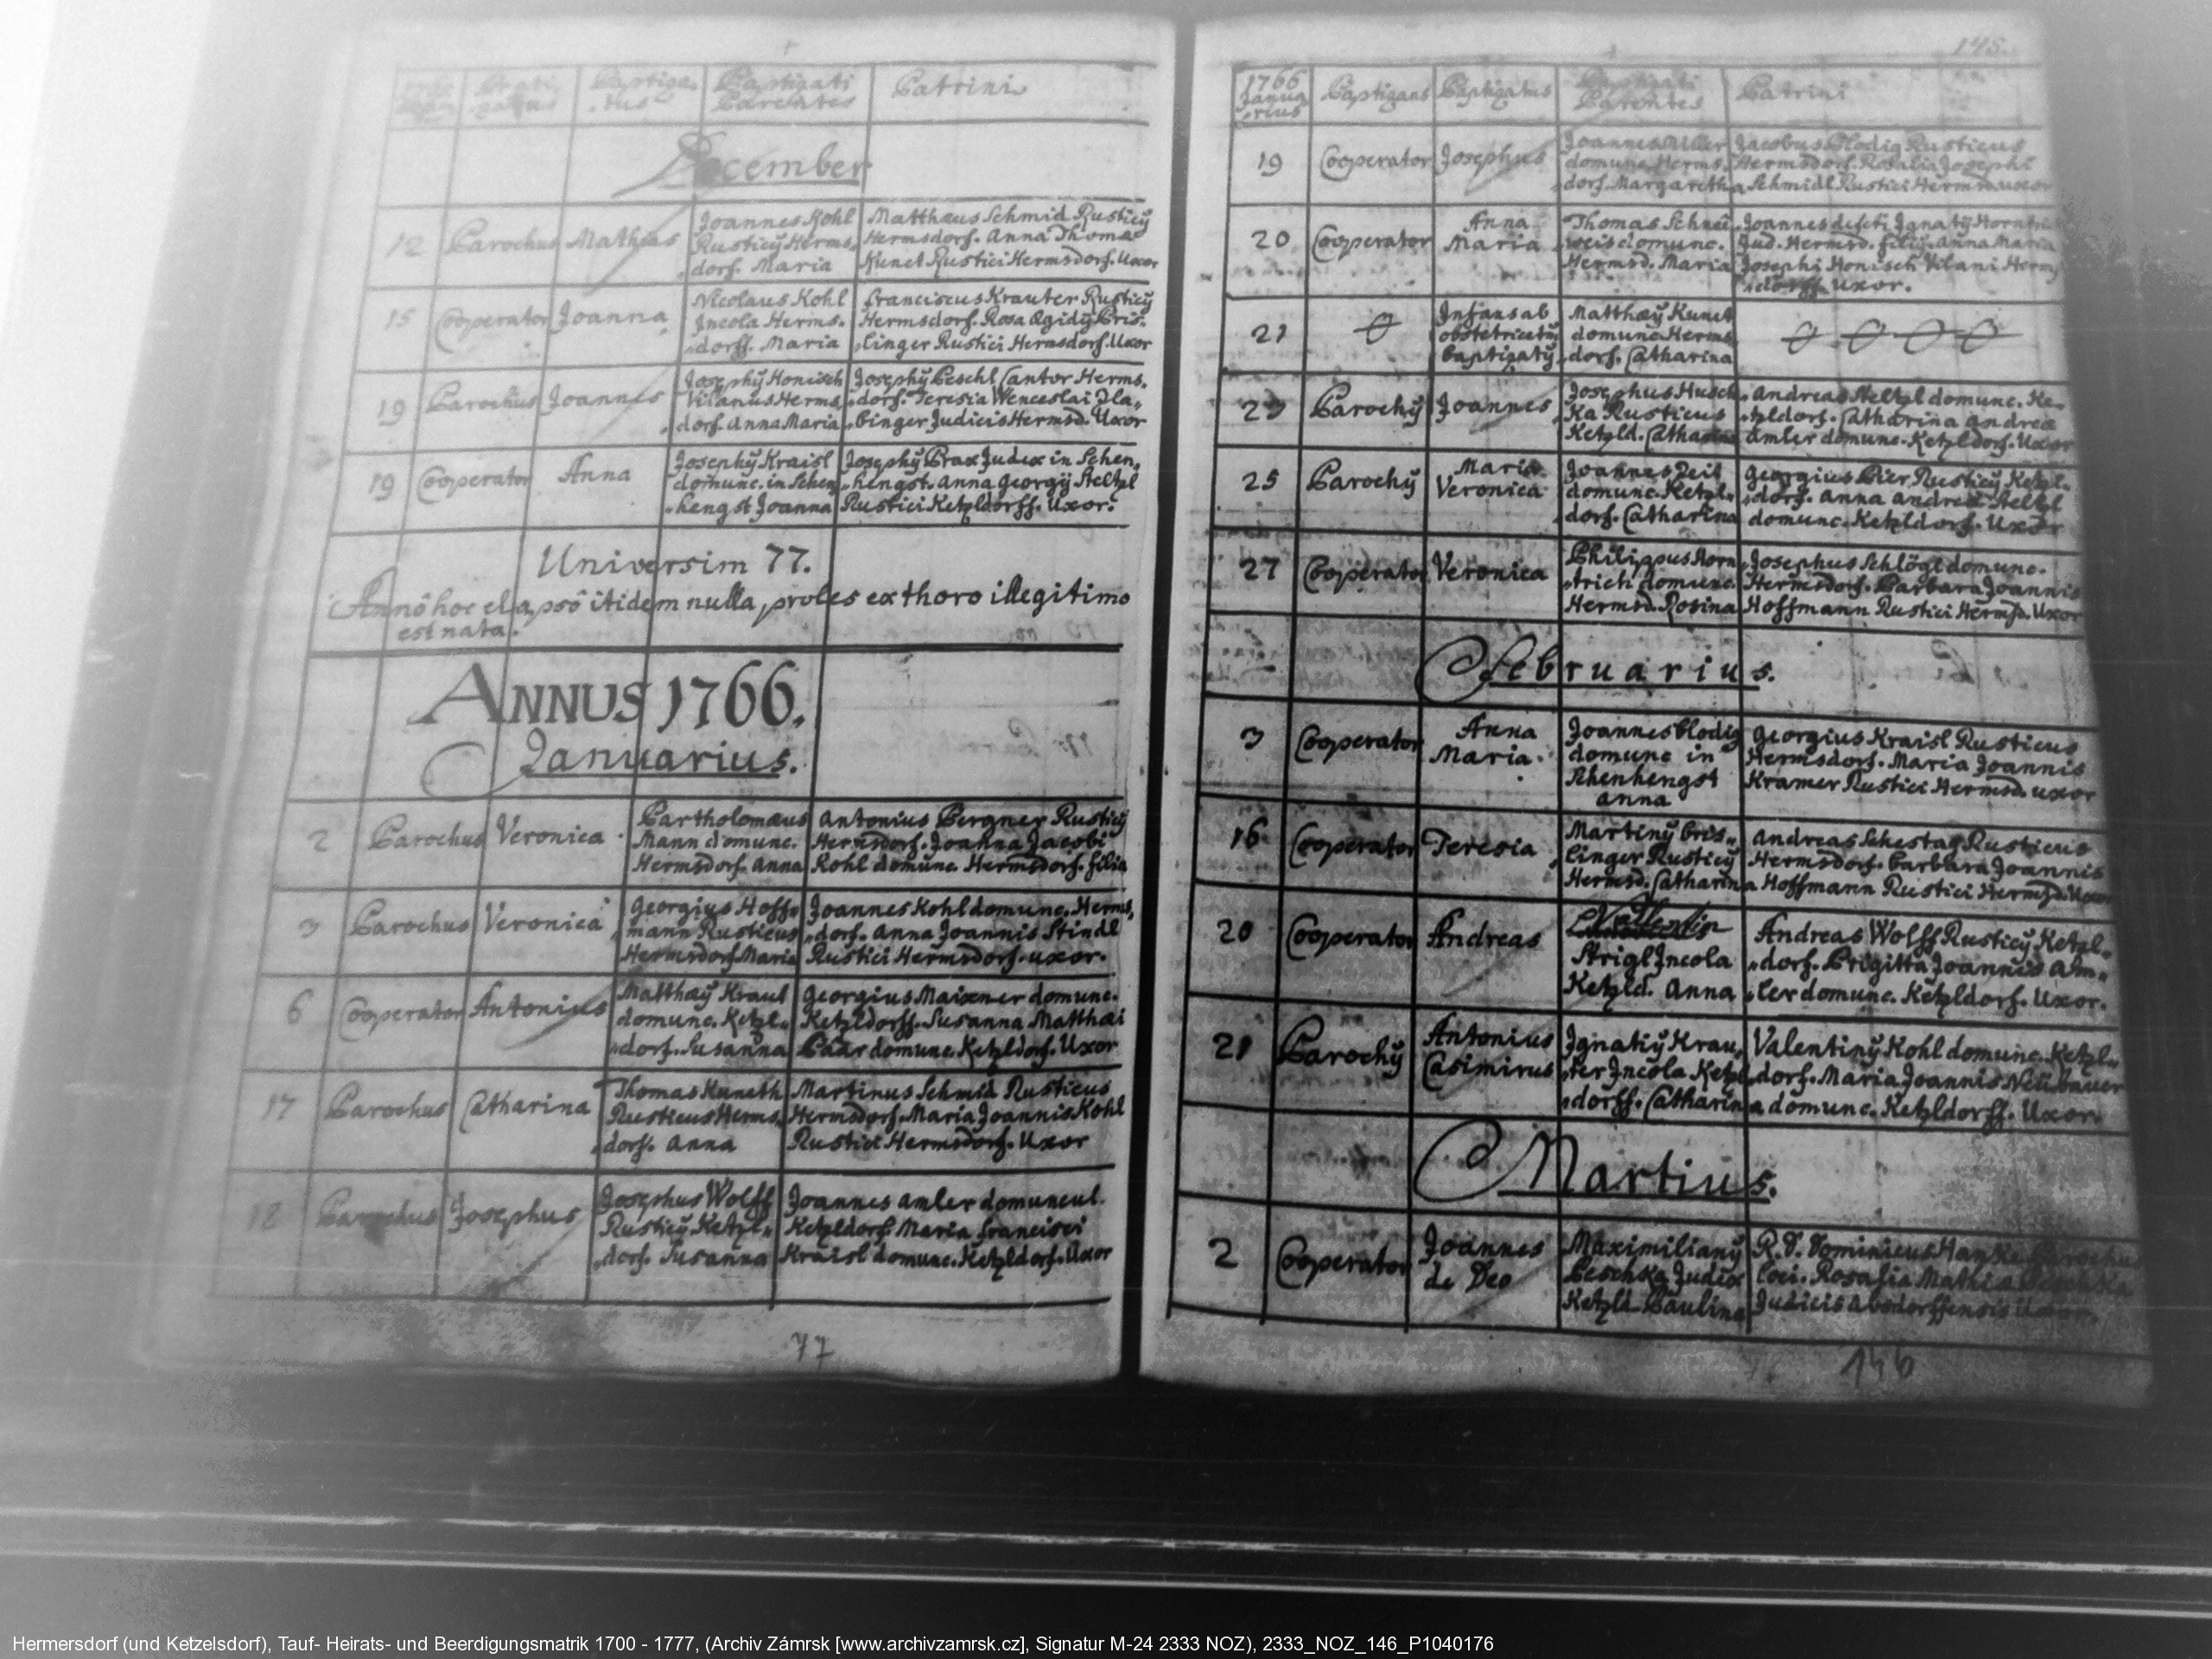 Baptiza-
tus
Baptizati
Parentes
Patrini
December
12 Parochus Mathias
Joannes Kohl
Rusticy Herms,
dorf. Maria
Matthæus Schmid Rusticy
Hermsdorf. Anna Thomæ
Kunet Rustici Hermsdorf. Uxor
15 Cooperator Joanna
Nicolaus Kohl
Incola Herms.
dorff. Maria
Franciscus Krauter Rusticy
Hermsdorf. Rosa Ægidÿ Bris,
linger Rustici Hermsdorf. Uxor
19 Parochus Joannes
Josephÿ Honisch
Vilanus Herms,
dorf. Anna Maria
Josephÿ Peschl Cantor Herms,
dorf. Teresia Wenceslai
binger Judicis Hermsd. Uxor
19 Cooperator Anna
Josephÿ Kraisl
domunc. in Schen,
hengst Joanna
Josephÿ Brax Judex in Schen,
hengst. Anna Georgÿ Steltzl
Rustici Ketzldorff. Uxor.
Universim 77.
Annô hoc elapsô itidem nulla proles ex thoro illegitimo
est nata.
ANNUS 1766.
Januarius.
2 Parochus Veronica.
Bartholomæus
Mann domunc.
Hermsdorf. Anna
Antonius Bergner Rusticy
Hermsdorf. Joanna Jacobi
Kohl domunc. Hermsdorf. filia
3 Parochus Veronica
Georgius Hoff,
mann Rusticus
Hermsdorf Maria
Joannes Kohl domunc. Herms,
dorf. Anna Joannis Stindl
Rustici Hermsdorf. uxor.
6 Cooperator Antonius
Matthæÿ Kraul
domunc. Ketzl,,
dorf. Susanna
Georgius Maixner domunc.
Ketzldorff. Susanna Matthæi
Paar domunc. Ketzldorf. Uxor
17 Parochus Catharina
Thomas Kuneth
Rusticus Herms,
dorf. Anna
Martinus Schmid Rusticus
Hermsdorf. Maria Joannis Kohl
Rustici Hermsdorf. Uxor
18 Parochus Josephus
Josephus Wolff
Rusticÿ Ketzl,,
dorf. Susanna
Joannes Amler domuncul.
Ketzldorf. Maria Francisci
Kraisl domunc. Ketzldorf. Uxor
77
145.
1766
Janua
rius
Baptizans
Baptizatus
Baptizati
Parentes
Patrini
19 Cooperator Josephus
Joannes Miller
domunc. Herms,
dorf. Margaretha
Jacobus Blodig Rusticus
Hermsdorf. Rosalia Josephi
Schmidl Rustici Hermsd. uxor
20 Cooperator
Anna
Maria
Thomas Schnee,
weis domunc.
Hermsd. Maria
Joannes defcti Ignatÿ
Jud. Hermsd. filiÿ. Anna Maria
Josephi Honisch Vilani Herms
dorff. uxor.
21
Infans ab
obstetrice
baptizatÿ
Matthæÿ Kunet
domunc. Herms,
dorf. Catharina
23 Parochÿ Joannes
Josephus Husch,
ka Rusticus
Ketzld. Catharina
Andreas Steltzl domunc. Ke,
tzldorf. Catharina Andreæ
Amler domunc. Ketzldorf. Uxor
25 Parochÿ
Maria
Veronica
Joannes Zeit
domunc. Ketzl,,
dorf. Catharina
Georgius Pier Rusticÿ Ketzl,
dorf. Anna Andreæ Steltzl
domunc. Ketzldorf. Uxor
27 Cooperator Veronica
Philippus Horn,
trich domunc.
Hermsd. Rosina
Josephus Schlögl domunc.
Hermsdorf. Barbara Joannis
Hoffmann Rustici Hermsd. Uxor
Februarius.
3 Cooperator
Anna
Maria.
Joannes Blodig
domunc in
Schenhengst
Anna
Georgius Kraisl Rusticus
Hermsdorf. Maria Joannis
Kramer Rustici Hermsd. uxor
16 Cooperator Teresia
Martinÿ Bris,,
linger Rusticÿ
Hermsd. Catharina
Andreas Schestag Rusticus
Hermsdorf. Barbara Joannis
Hoffmann Rustici Hermsd. Uxor
20 Cooperator Andreas
Vallentin
Strigl Incola
Ketzld. Anna
Andreas Wolff Rusticÿ Ketzl,,
dorf. Brigitta Joannis Am,,
ler domunc. Ketzldorf. Uxor.
21 Parochÿ
Antonius
Casimirus
Ignatiÿ Krau,
ter Incola Ketzl,
dorff. Catharina
Valentinÿ Kohl domunc. Ketzl,,
dorf. Maria Joannis Neübauer
domunc. Ketzldorff. Uxor.
Martius.
2 Cooperator
Joannes
de Deo
Maximilianÿ
Peschka Judex
Ketzld. Paulina
R. D. Dominicus Hanke Parochus
loci. Rosalia Mathiæ Peschka
Judicis Abtsdorffensis Uxor.
146
Hermersdorf (und Ketzelsdorf), Tauf- Heirats- und Beerdigungsmatrik 1700 - 1777, (Archiv Zámrsk [www.archivzamrsk.cz], Signatur M-24 2333 NOZ), 2333_NOZ_146_P1040176